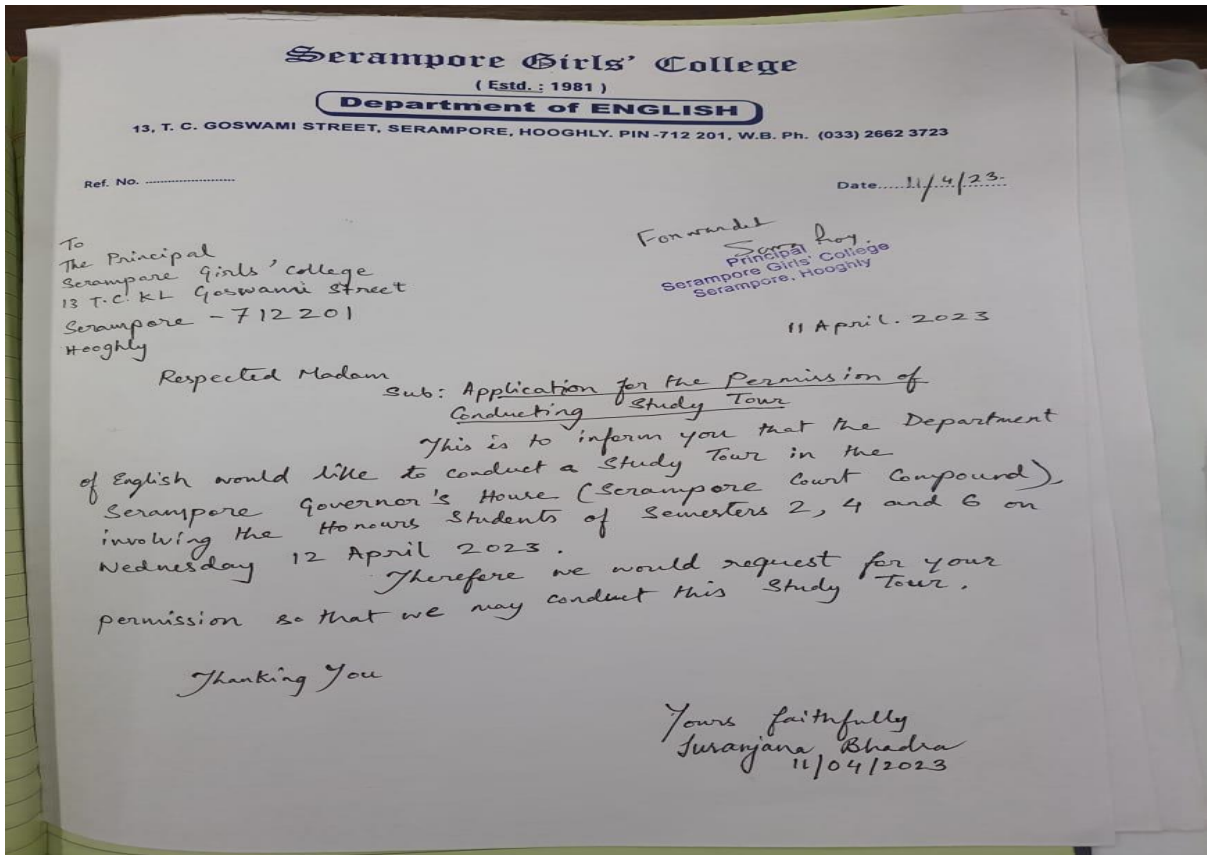 Serampore Girls' College
( Estd. : 1981 )
Department of ENGLISH
13, T. C. GOSWAMI STREET, SERAMPORE, HOOGHLY. PIN -712 201, W.B. Ph. (033) 2662 3723
Ref. No. ........................
Date.....11/4/23.
To
The Principal
Serampore Girls' College
13 T.C. KL Goswami Street
Serampore - 712201
Hooghly
Forwarded
Roy.
Principal
Serampore Girls' College
Serampore, Hooghly
11 April. 2023
Respected Madam
Sub: Application for the Permission of
Conducting Study Tour
This is to inform you that the Department
of English would like to conduct a Study Tour in the
Serampore Governor's House (Serampore Court Compound),
involving the Honours Students of Semesters 2, 4 and 6 on
Wednesday 12 April 2023.
Therefore we would request for your
permission so that we may conduct this Study Tour.
Thanking You
Yours faithfully
Suranjana Bhadra
11/04/2023